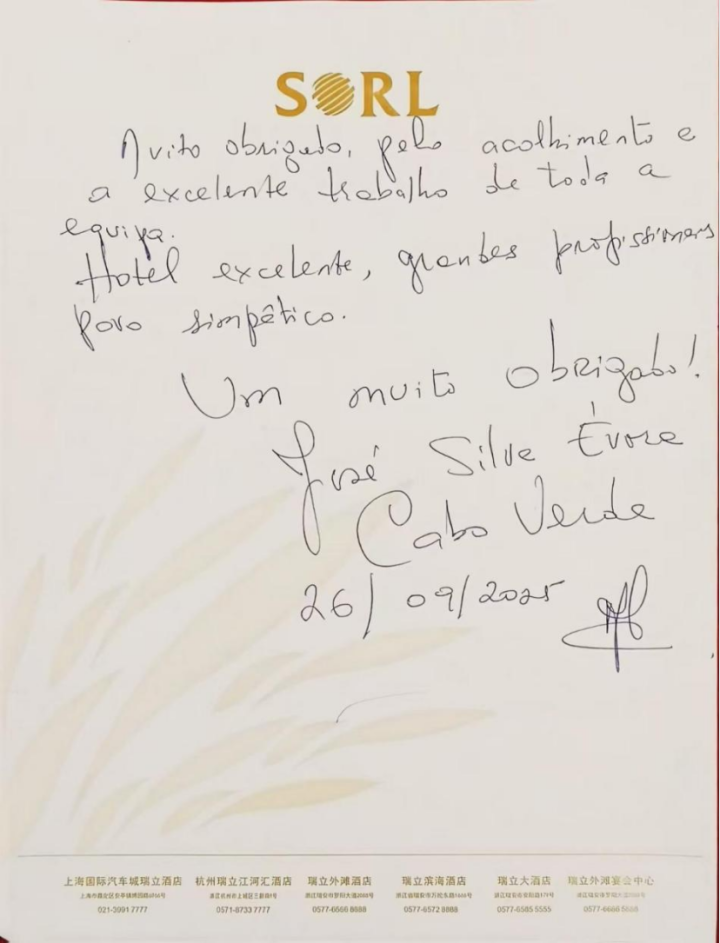 SORL
Muito obrigado, pelo acolhimento e
a excelente trabalho de toda a
equipa.
Hotel excelente, grandes profissionais
povo simpático.
Um muito obrigado!
José Silva Évora
Cabo Verde
26/09/2025
上海国际汽车城瑞立酒店 杭州瑞立江河汇酒店 瑞立外滩酒店 瑞立滨海酒店 瑞立大酒店 瑞立外滩宴会中心
021-3991 7777 0571-8733 7777 0577-6566 8888 0577-6572 8888 0577-6585 5555